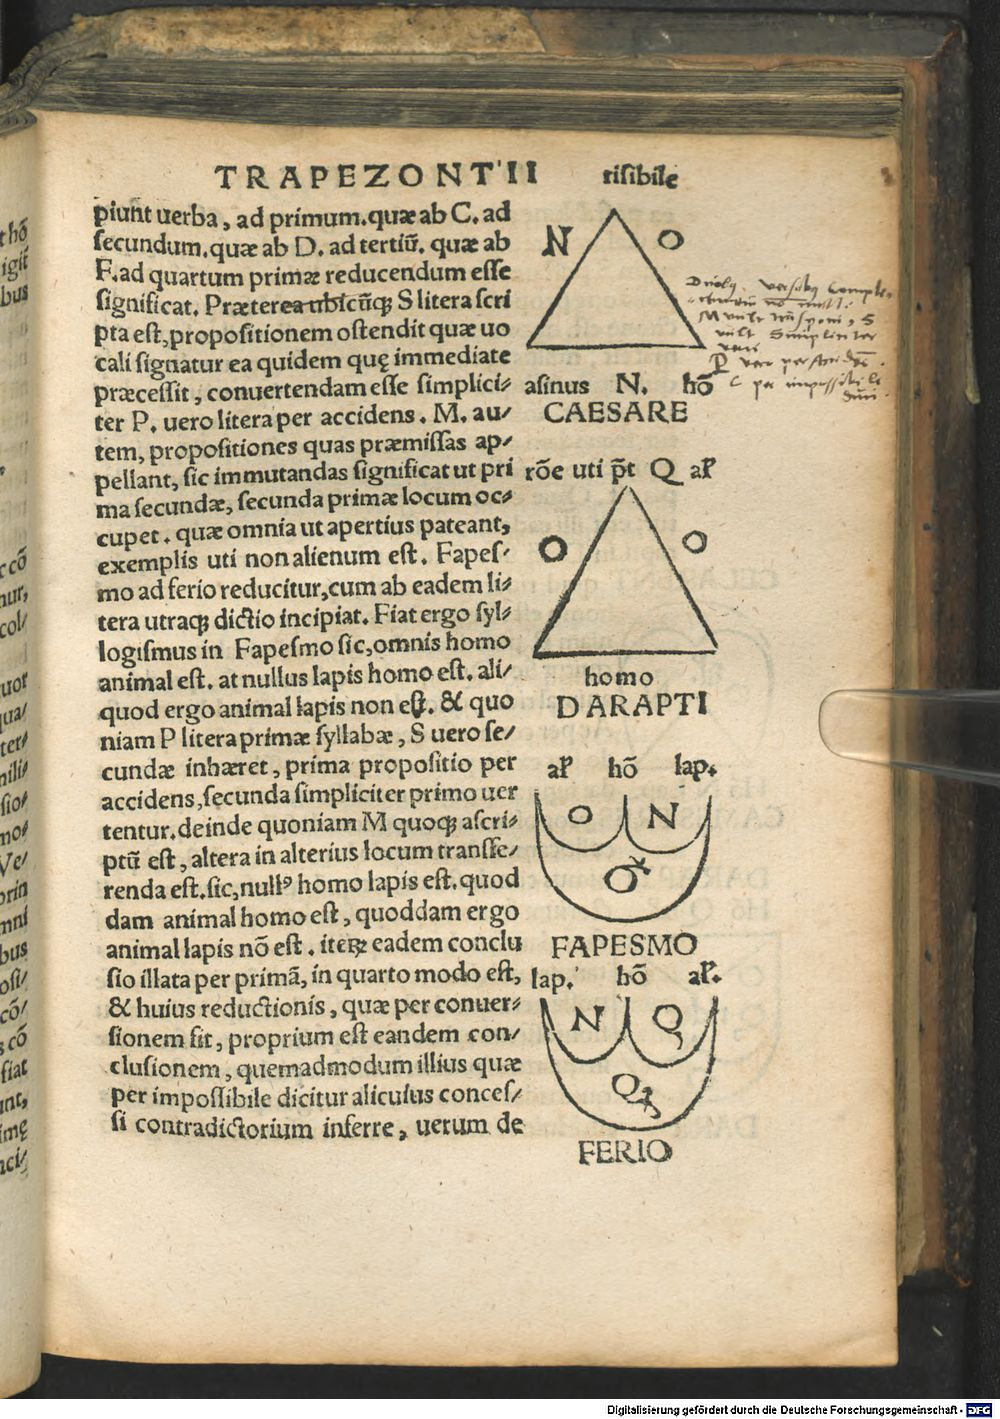 TRAPEZONT'II
piunt uerba, ad primum. quæ ab C. ad
secundum. quæ ab D. ad tertiū. quæ ab
F. ad quartum primæ reducendum esse
significat. Præterea ubicūqꝫ S litera scri
pta est, propositionem ostendit quæ uo
cali signatur ea quidem quę immediate
præcessit, conuertendam esse simplici⸗
ter P. uero litera per accidens. M. au⸗
tem, propositiones quas præmissas ap⸗
pellant, sic immutandas significat ut pri
ma secundæ, secunda primæ locum oc⸗
cupet. quæ omnia ut apertius pateant,
exemplis uti non alienum est. Fapes⸗
mo ad ferio reducitur, cum ab eadem li⸗
tera utraqꝫ dictio incipiat. Fiat ergo syl⸗
logismus in Fapesmo sic, omnis homo
animal est. at nullus lapis homo est. ali⸗
quod ergo animal lapis non est. & quo
niam P litera primæ syllabæ, S uero se⸗
cundæ inhæret, prima propositio per
accidens, secunda simpliciter primo uer
tentur. deinde quoniam M quoqꝫ ascri⸗
ptū est, altera in alterius locum transfe⸗
renda est. sic, nullꝰ homo lapis est. quod
dam animal homo est, quoddam ergo
animal lapis nō est. iteꝝ eadem conclu
sio illata per primā, in quarto modo est,
& huius reductionis, quæ per conuer⸗
sionem fit, proprium est eandem con⸗
clusionem, quemadmodum illius quæ
per impossibile dicitur alicuius conces⸗
si contradictorium inferre, uerum de
risibile
N O
asinus N. hō
CAESARE
rōe uti p̄t Q al̄
O O
homo
DARAPTI
al̄ hō lap.
O N
Ŏ
FAPESMO
lap. hō al̄.
N Q
Q
FERIO
M vult
S
vult Simpliciter
verti
P vero per acci
C per impossibile
duci
thō
igit
bus
Digitalisierung gefördert durch die Deutsche Forschungsgemeinschaft - DFG